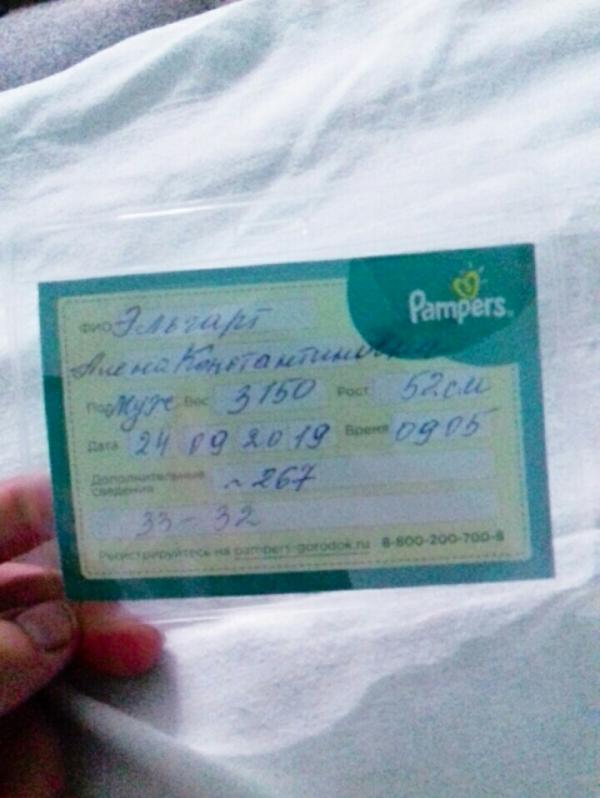 Pampers
ФИО Эльгарт
Алена Константиновна
Пол Муж Вес 3150 Рост 52 см
Дата 24 09 2019 Время 09 05
Дополнительные сведения ~ 267
33 - 32
Регистрируйтесь на pampers-gorodok.ru 8-800-200-700-8